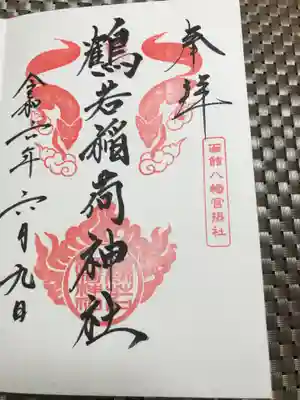 奉拝
函館八幡宮摂社
鶴若稲荷神社
令和六年六月九日